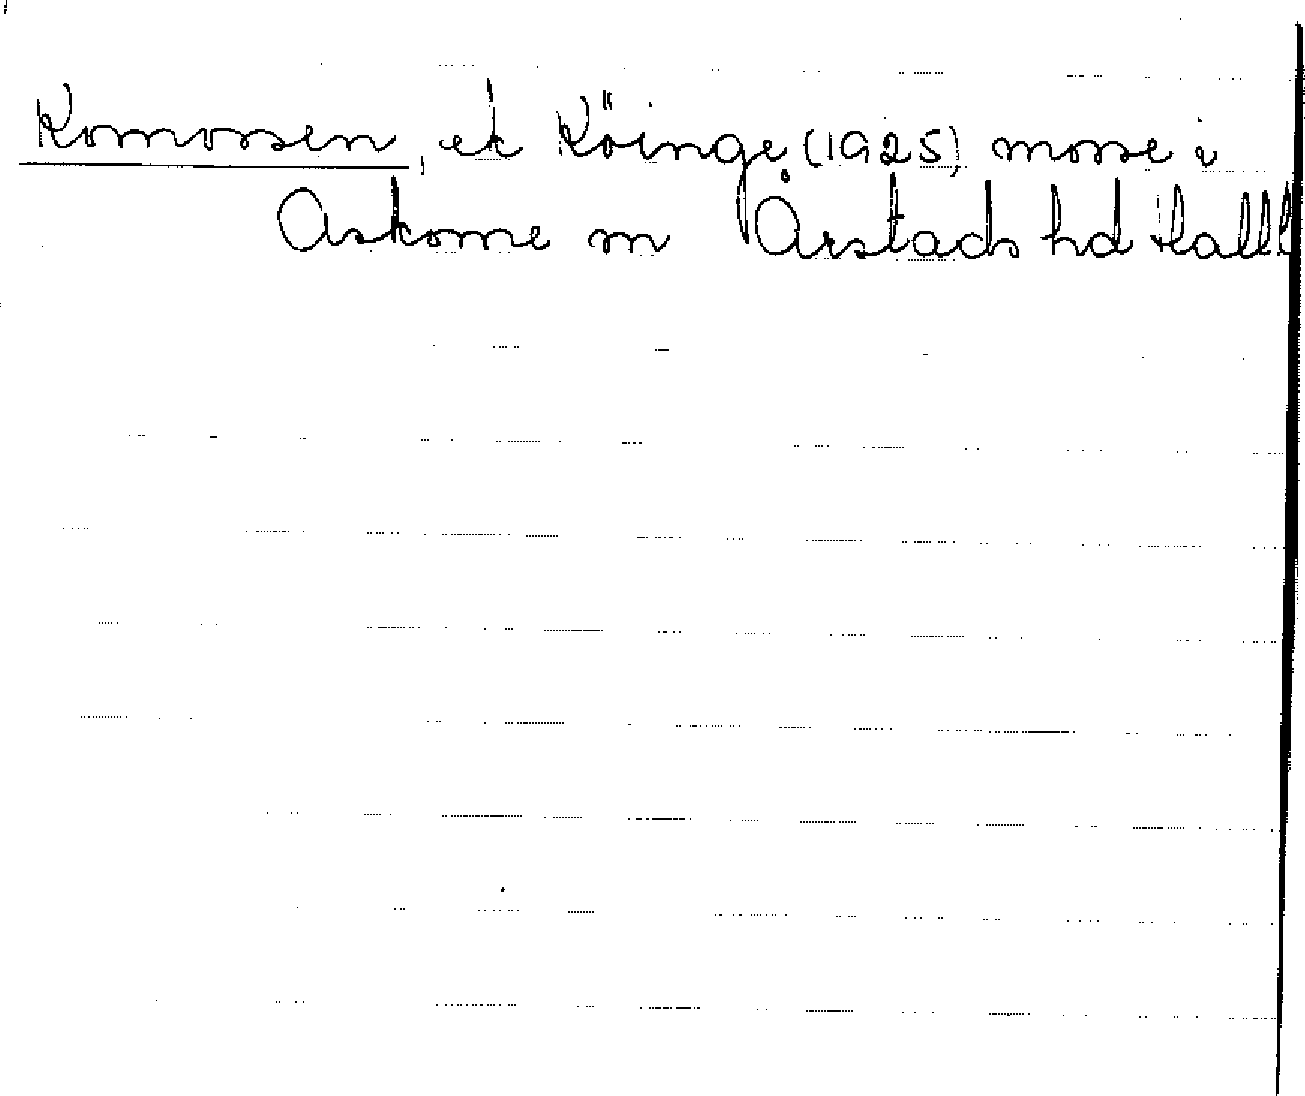 Komossen, ek Köinge (1925) mosse i
Askome sn Årstads hd Hall